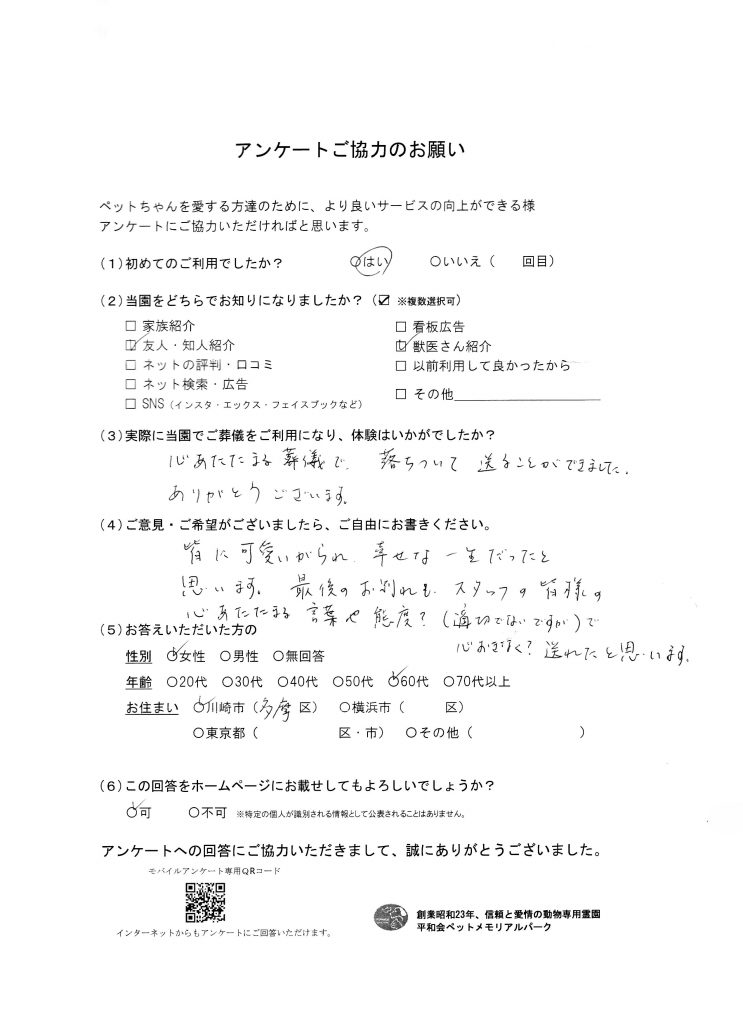 アンケートご協力のお願い
ペットちゃんを愛する方達のために、より良いサービスの向上ができる様
アンケートにご協力いただければと思います。
（1）初めてのご利用でしたか？ ○はい ○いいえ（ 回目）
（2）当園をどちらでお知りになりましたか？（☑ ※複数選択可）
□ 家族紹介 □ 看板広告
☑ 友人・知人紹介 ☑ 獣医さん紹介
□ ネットの評判・口コミ □ 以前利用して良かったから
□ ネット検索・広告
□ その他
□ SNS（インスタ・エックス・フェイスブックなど）
（3）実際に当園でご葬儀をご利用になり、体験はいかがでしたか？
心あたたまる葬儀で、落ちついて送ることができました。
ありがとうございます。
（4）ご意見・ご希望がございましたら、ご自由にお書きください。
皆に可愛いがられ、幸せな一生だったと
思います。最後のお別れも、スタッフの皆様の
心あたたまる言葉や態度？（適切でないですが）で
心おきなく？送れたと思います。
（5）お答えいただいた方の
性別 ○女性 ○男性 ○無回答
年齢 ○20代 ○30代 ○40代 ○50代 ○60代 ○70代以上
お住まい ○川崎市（多摩 区） ○横浜市（ 区）
○東京都（ 区・市） ○その他（ ）
（6）この回答をホームページにお載せしてもよろしいでしょうか？
○可 ○不可 ※特定の個人が識別される情報として公表されることはありません。
アンケートへの回答にご協力いただきまして、誠にありがとうございました。
モバイルアンケート専用QRコード
インターネットからもアンケートにご回答いただけます。
創業昭和23年、信頼と愛情の動物専用霊園
平和会ペットメモリアルパーク